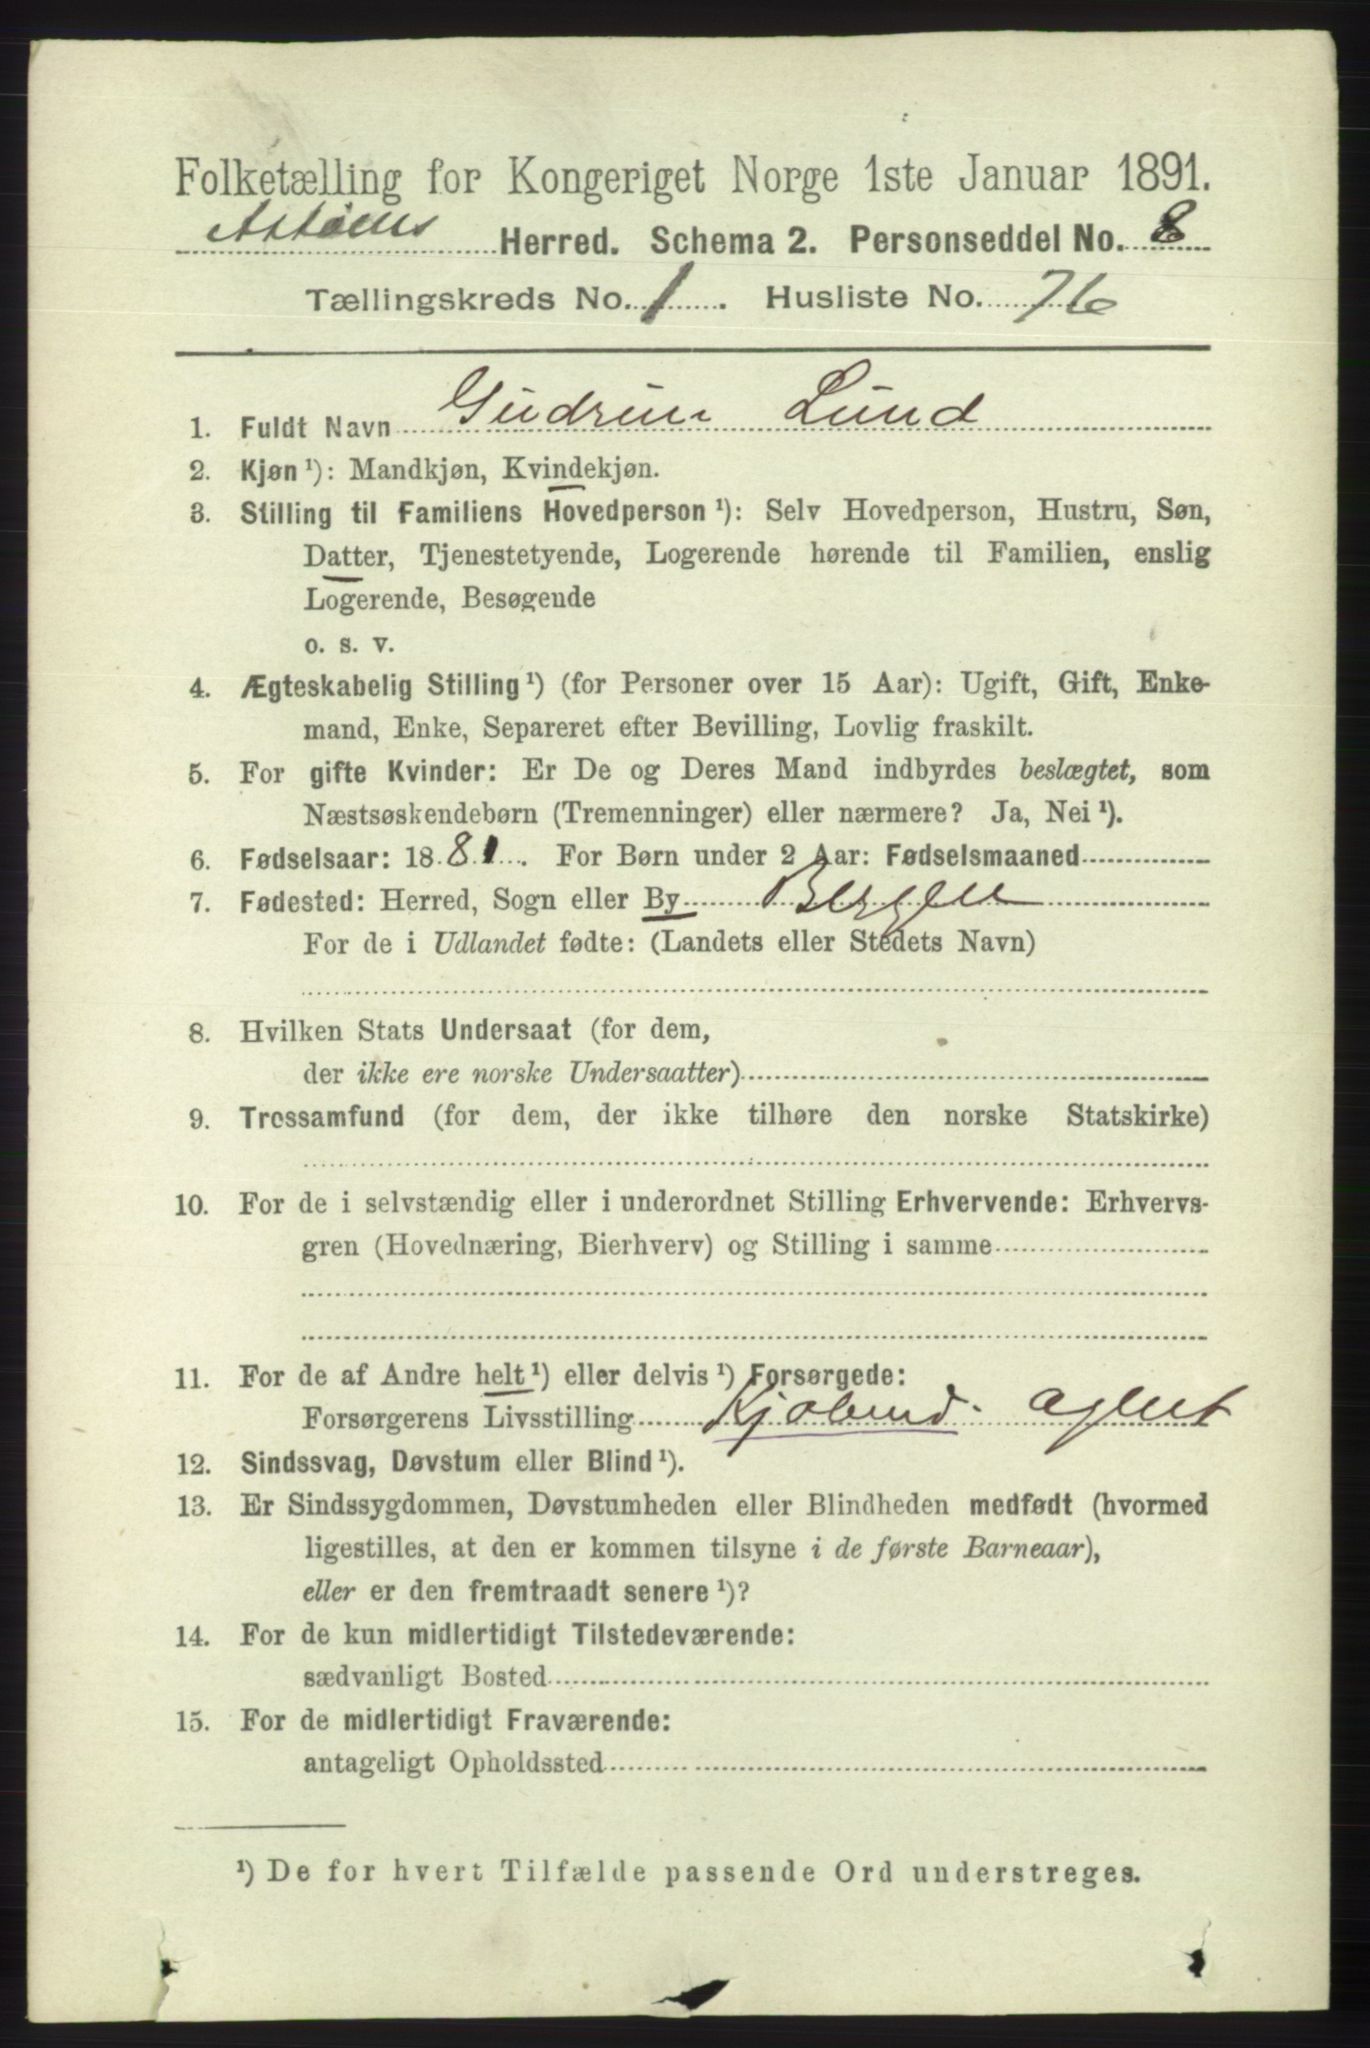 Folketælling for Kongeriget Norge 1ste Januar 1891.
Askøens Herred. Schema 2. Personseddel No. 8
Tællingskreds No. 1. Husliste No. 76
1. Fuldt Navn Gudrun Lund
2. Kjøn ¹): Mandkjøn, Kvindekjøn.
3. Stilling til Familiens Hovedperson ¹): Selv Hovedperson, Hustru, Søn,
Datter, Tjenestetyende, Logerende hørende til Familien, enslig
Logerende, Besøgende
o. s. v.
4. Ægteskabelig Stilling ¹) (for Personer over 15 Aar): Ugift, Gift, Enke-
mand, Enke, Separeret efter Bevilling, Lovlig fraskilt.
5. For gifte Kvinder: Er De og Deres Mand indbyrdes beslægtet, som
Næstsøskendebørn (Tremenninger) eller nærmere? Ja, Nei ¹).
6. Fødselsaar: 1881. For Børn under 2 Aar: Fødselsmaaned
7. Fødested: Herred, Sogn eller By Bergen
For de i Udlandet fødte: (Landets eller Stedets Navn)
8. Hvilken Stats Undersaat (for dem,
der ikke ere norske Undersaatter)
9. Trossamfund (for dem, der ikke tilhøre den norske Statskirke)
10. For de i selvstændig eller i underordnet Stilling Erhvervende: Erhvervs-
gren (Hovednæring, Bierhverv) og Stilling i samme
11. For de af Andre helt ¹) eller delvis ¹) Forsørgede:
Forsørgerens Livsstilling Kjøbmd. agent
12. Sindssvag, Døvstum eller Blind ¹).
13. Er Sindssygdommen, Døvstumheden eller Blindheden medfødt (hvormed
ligestilles, at den er kommen tilsyne i de første Barneaar),
eller er den fremtraadt senere ¹)?
14. For de kun midlertidigt Tilstedeværende:
sædvanligt Bosted
15. For de midlertidigt Fraværende:
antageligt Opholdssted
¹) De for hvert Tilfælde passende Ord understreges.